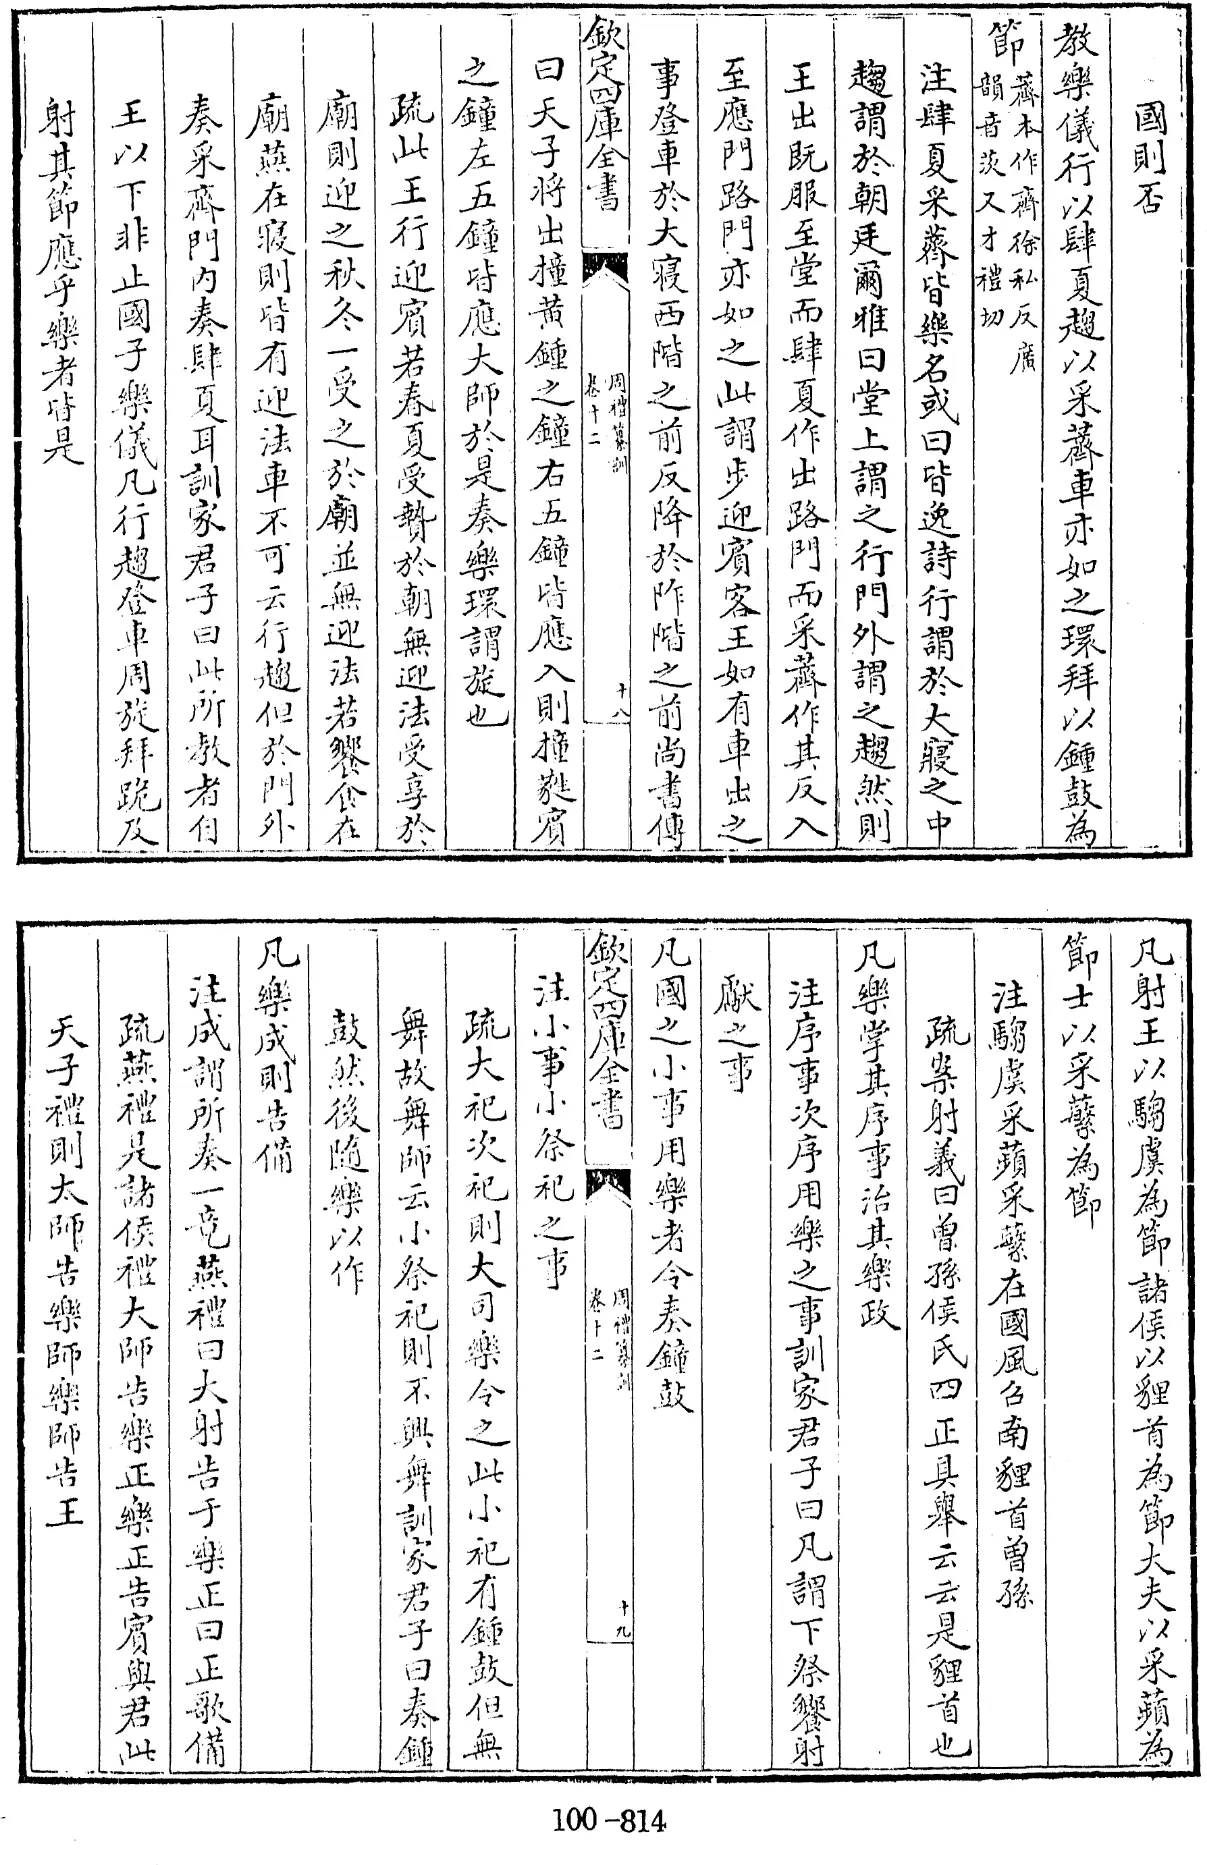 國則否
教樂儀行以肆夏趨以采薺車亦如之環拜以鍾鼓為
節薺本作齊徐私反廣
韻音茨又才禮切
注肆夏采薺皆樂名或曰皆逸詩行謂於大寢之中
趨謂於朝廷爾雅曰堂上謂之行門外謂之趨然則
王出既服至堂而肆夏作出路門而采薺作其反入
至應門路門亦如之此謂步迎賓客王如有車出之
事登車於大寢西階之前反降於阼階之前尚書傳
欽定四庫全書
周禮纂訓
卷十二
十八
曰天子將出撞黃鍾之鐘右五鐘皆應入則撞蕤賓
之鐘左五鐘皆應大師於是奏樂環謂旋也
疏此王行迎賓若春夏受贄於朝無迎法受享於
廟則迎之秋冬一受之於廟並無迎法若饗食在
廟燕在寢則皆有迎法車不可云行趨但於門外
奏采薺門内奏肆夏耳訓家君子曰此所教者自
王以下非止國子樂儀凡行趨登車周旋拜跪及
射其節應乎樂者皆是
凡射王以騶虞為節諸侯以貍首為節大夫以采蘋為
節士以采蘩為節
注騶虞采蘋采蘩在國風召南貍首曾孫
疏案射義曰曾孫侯氏四正具舉云云是貍首也
凡樂掌其序事治其樂政
注序事次序用樂之事訓家君子曰凡謂下祭饗射
獻之事
凡國之小事用樂者令奏鐘鼓
欽定四庫全書
周禮纂訓
卷十二
十九
注小事小祭祀之事
疏大祀次祀則大司樂令之此小祀有鍾鼓但無
舞故舞師云小祭祀則不興舞訓家君子曰奏鍾
鼓然後隨樂以作
凡樂成則告備
注成謂所奏一竟燕禮曰大射告于樂正曰正歌備
疏燕禮是諸侯禮大師告樂正樂正告賓與君此
天子禮則太師告樂師樂師告王
100-814